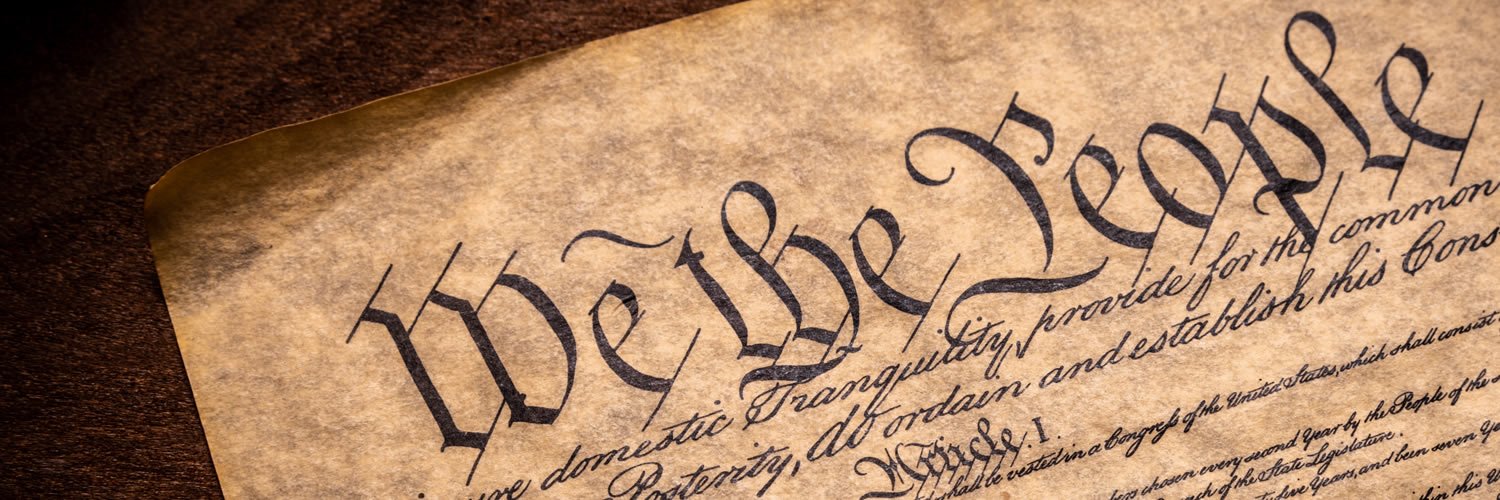 We the People
domestic Tranquility, provide for the common
Posterity, do ordain and establish this Cons
Article. I.
shall be vested in a Congreſs of the United States, which shall consist
chosen every second Year by the People of the
of the State Legislature.
five Years, and been seven
in this